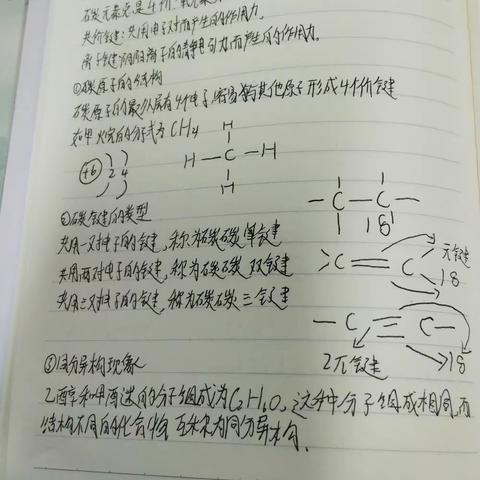 碳元素总是4价,氧元素
共价键:共用电子对而产生的作用力。
离子键:阴阳离子的静电引力而产生的作用力。
①碳原子的结构
碳原子的最外层有4个电子,容易与其他原子形成4个价键
如甲烷的分子式为CH4
+6 2 4
H
H—C—H
H
②碳键的类型
共用一对电子的键,称为碳碳单键
共用两对电子的键,称为碳碳双键
共用三对电子的键,称为碳碳三键
—C—C—
1δ
C=C
π键
1δ
—C≡C—
2π键
1δ
③同分异构现象
乙醇和甲醚的分子组成为C2H6O,这种分子组成相同,而
结构不同的化合物,互称为同分异构。